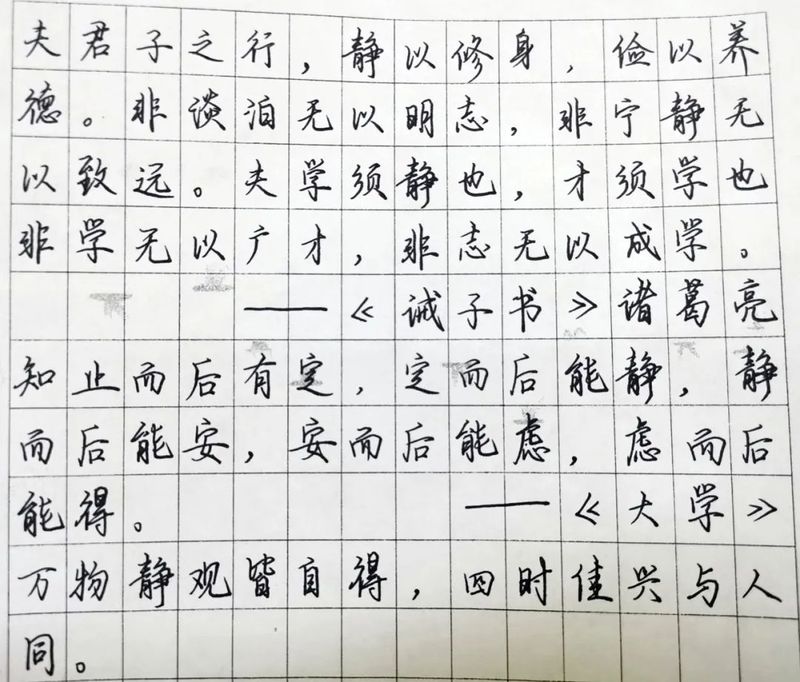 夫君子之行，静以修身，俭以养
德。非谈泊无以明志，非宁静无
以致远。夫学须静也，才须学也
非学无以广才，非志无以成学。
——《诫子书》诸葛亮
知止而后有定，定而后能静，静
而后能安，安而后能虑，虑而后
能得。 ——《大学》
万物静观皆自得，四时佳兴与人
同。